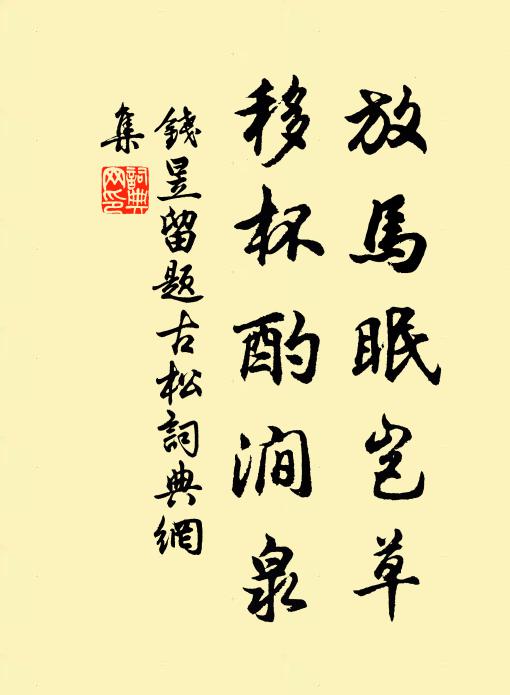 放馬眠岩草
移杯酌澗泉
錢昱留題古松詞典網
集
詞典
网印